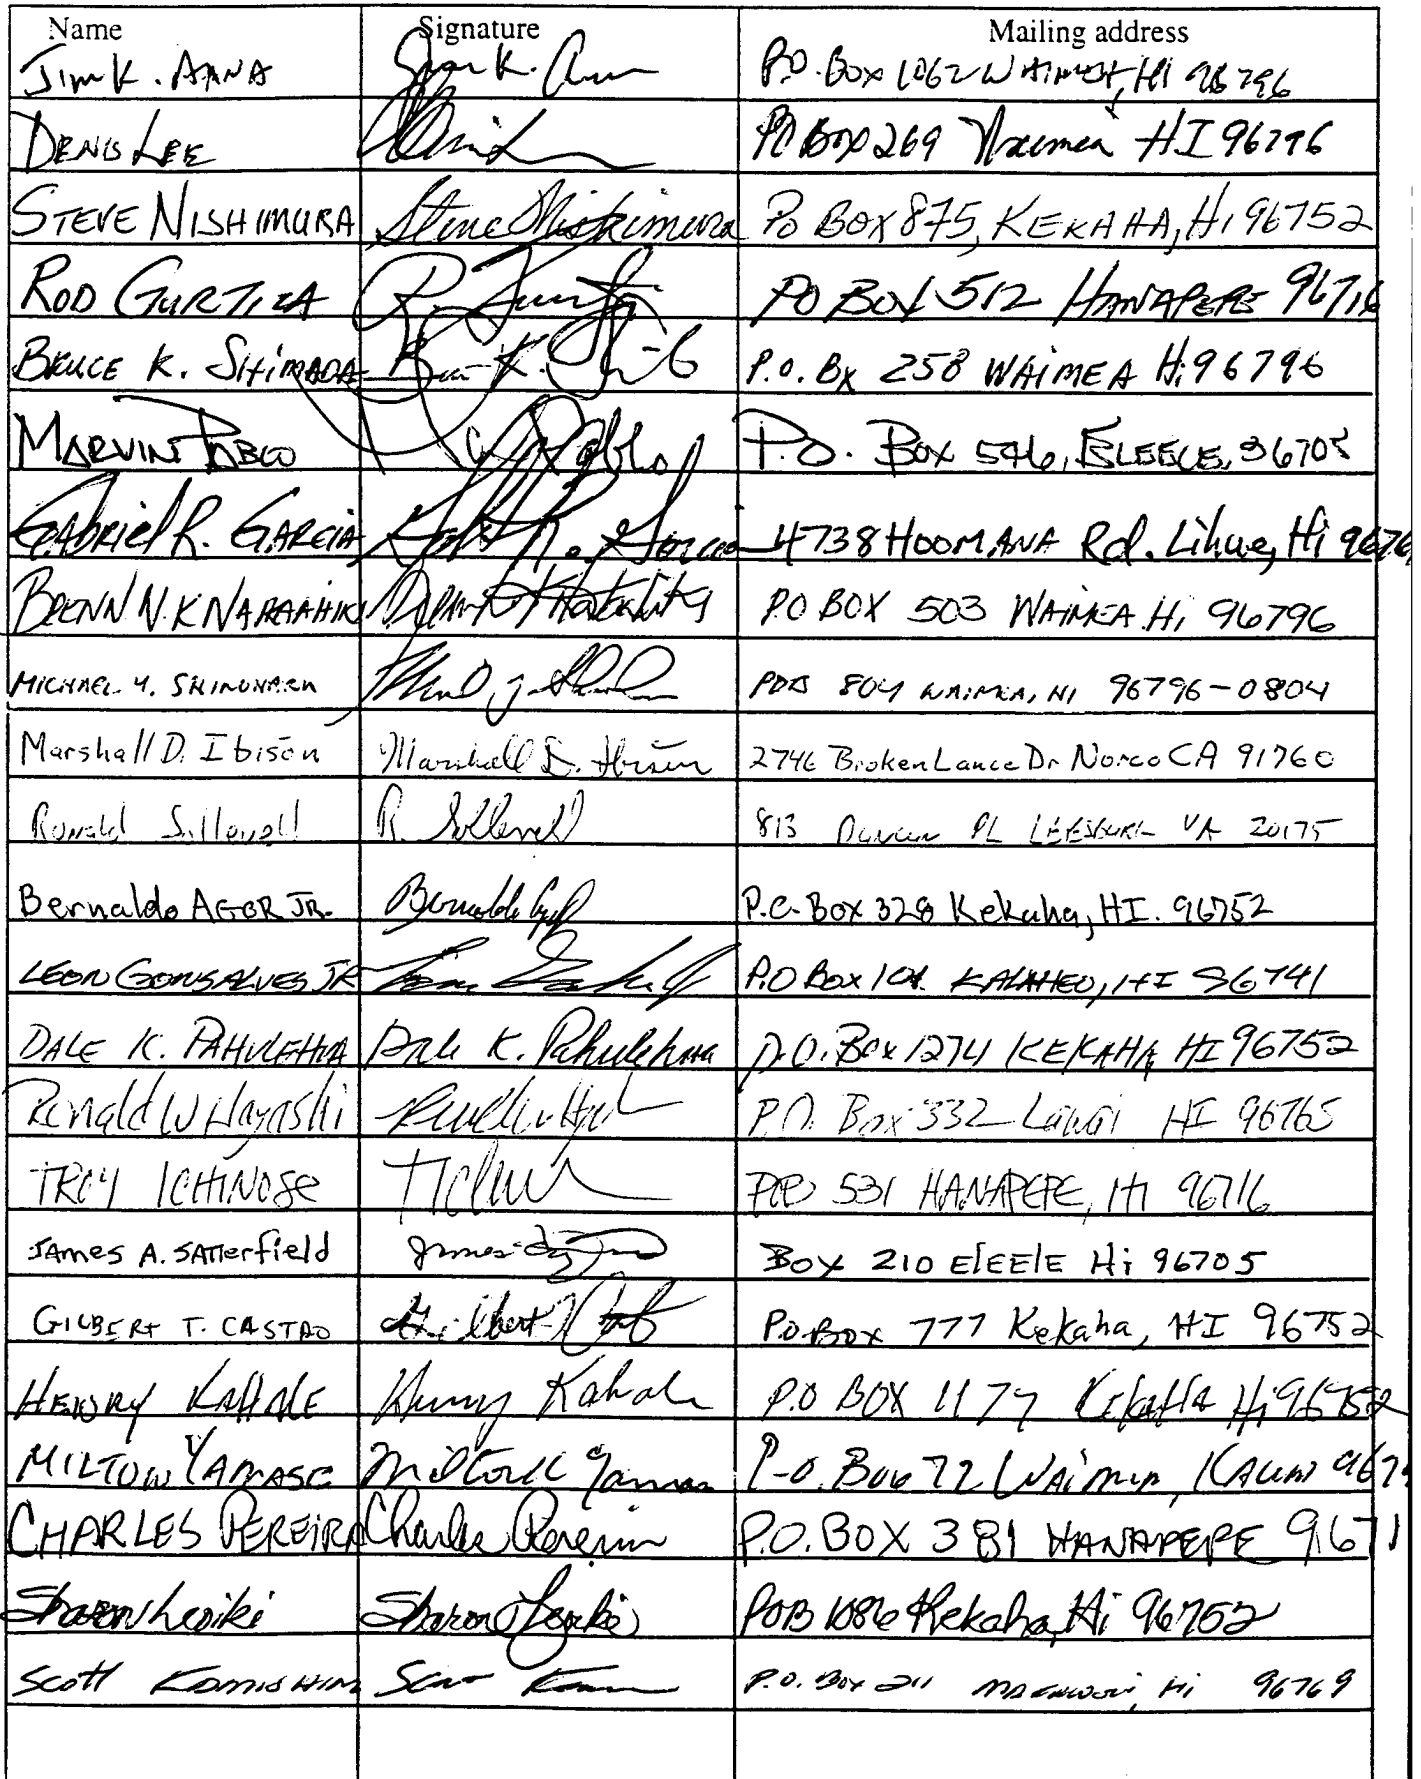 Name Signature Mailing address
Jim K. APNA P.O. Box 1062 WAIMEA, HI 96796
DENIS LEE PO Box 269 Waimea HI 96796
STEVE NISHIMURA Steve Nishimura Po Box 875, KEKAHA, Hi 96752
ROD GURTIZA R. PO BOX 512 HANAPEPE 96716
BRUCE K. SHIMADA P.O. Bx 258 WAIMEA Hi 96796
MARVIN PABLO Pablo P.O. Box 546, ELEELE, 96705
GAbRiel R. GARCIA R. Garcia 4738 HOOMANA Rd. Lihue, Hi 9676
BRENN N.K PO BOX 503 WAIMEA Hi 96796
MICHAEL Y. SHINONARA POB 804 WAIMEA, HI 96796-0804
Marshall D. Ibison Marshall D. Ibison 2746 Broken Lance Dr Norco CA 91760
Ronald Sollowell R. 813 Duncan PL LEESBURG VA 20175
Bernaldo AGOR JR. Bernaldo P.O. Box 328 Kekaha, HI. 96752
LEON GONSALVES JR P.O Box 101 KALAHEO, HI 96741
DALE K. PAHULEHUA Dale K. Pahulehua P.O. Box 1274 KEKAHA HI 96752
Ronald W Hayashi P.O. Box 332 Lawai HI 96765
TROY ICHINOSE POB 531 HANAPEPE, HI 96716
JAmes A. SATTerfield James Box 210 ElEElE Hi 96705
GILBERT T. CASTRO Gilbert T P.O. Box 777 Kekaha, HI 96752
HENRY KAHALE Henry Kahale P.O BOX 1177 KekaHA Hi 96752
MILTON YAMASE Milton P.O. Box 72 WAimea, KAUAI 9679
CHARLES PEREIRA Charles Pereira P.O. BOX 381 HANAPEPE 9671
Sharon Leoiki Sharon POB 1086 Kekaha, Hi 96752
Scott Scott P.O. Box 211 Hi 96769